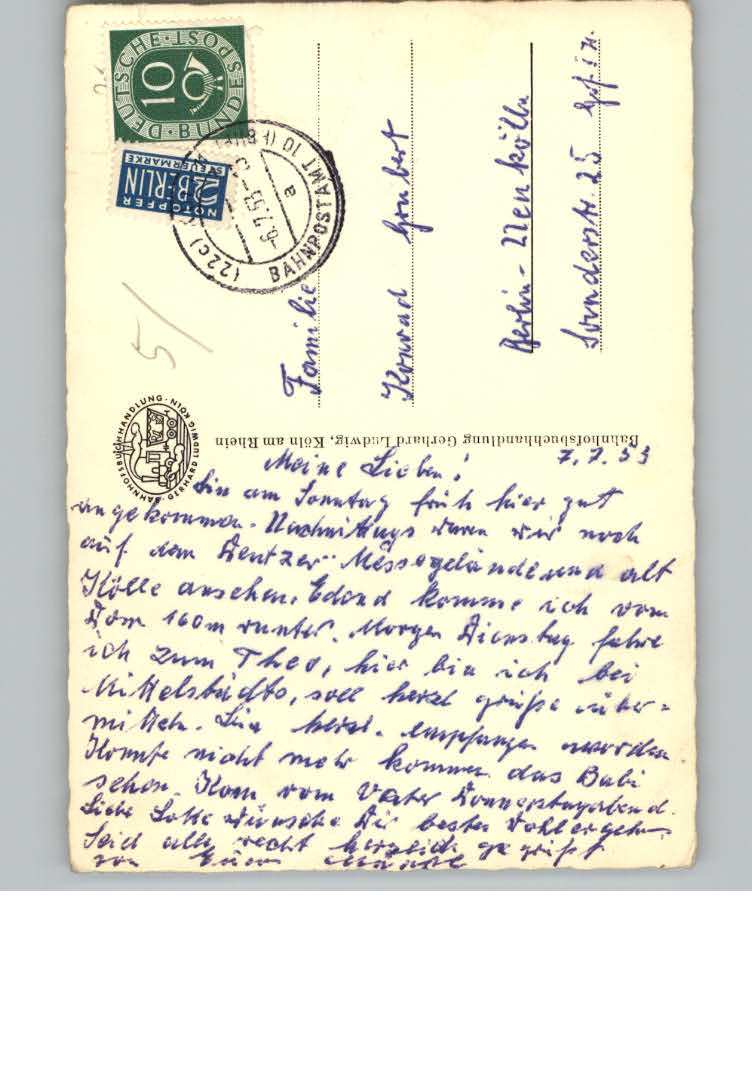 DEUTSCHE BUNDESPOST
10
NOTOPFER
2 BERLIN
STEUERMARKE
(22c) BAHNPOSTAMT 10
-6.7.53-
a
5/
BAHNHOFSBUCHHANDLUNG · GERHARD LUDWIG KÖLN
Bahnhofsbuchhandlung Gerhard Ludwig, Köln am Rhein
Familie
Konrad Graubert
Berlin-Neukölln
Sonderstr 25
7.7.53
Meine Lieben!
Bin am Sonntag früh hier gut
angekommen. Nachmittags waren wir noch
auf dem Deutzer Messegelände und alt
Kölle ansehen. Eben komme ich vom
Dom 160m runter. Morgen Dienstag fahre
ich zum Theo, hier bin ich bei
Mittelstädts, soll herzl grüße über-
mitteln. Bin herzl. empfangen worden
Konnte nicht mehr kommen das Babi
sehen. Kam vom Vater Donnerstagabend.
Liebe Lotte wünsche Dir besten Wohlergehen
Seid alle recht herzlich gegrüßt
von Eurer